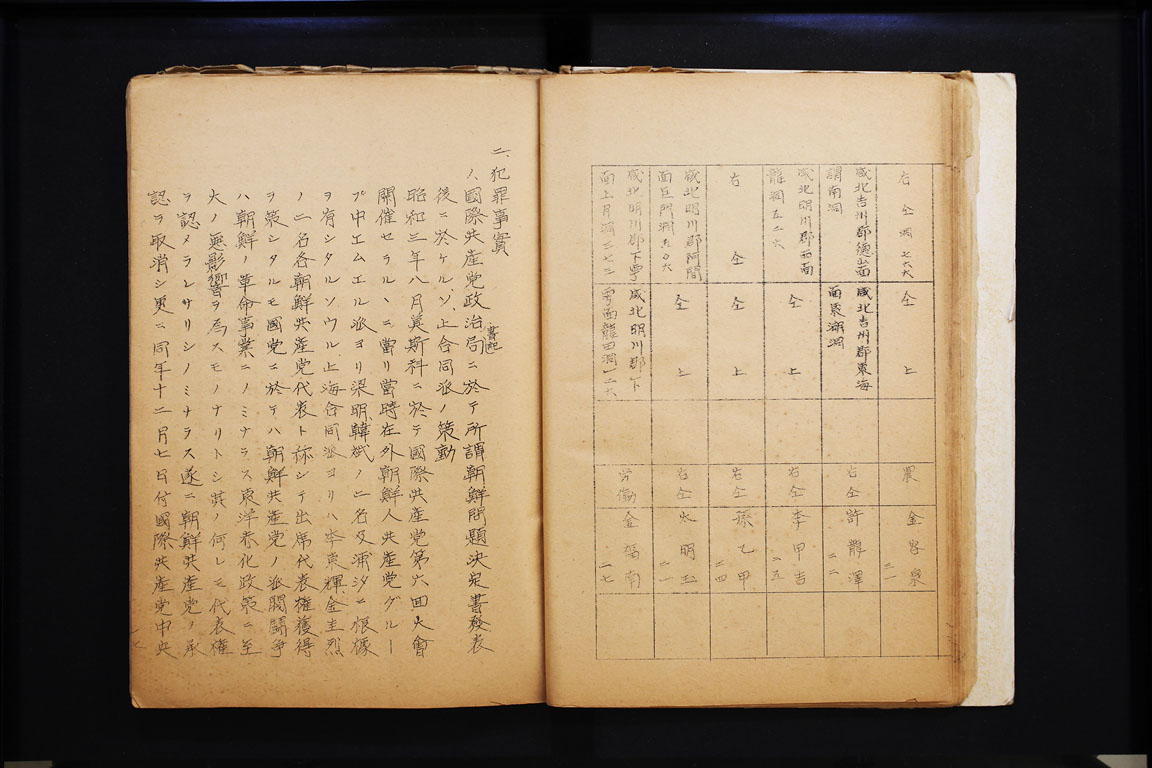 右 仝 洞 七六六
仝 上
農
金 容 泉
三一
咸北吉州郡德山面
謂南洞
咸北吉州郡東海
面泉湖洞
右仝
許 龍 澤
二二
咸北明川郡西面
龍洞五二六
仝 上
右仝
李 甲 吉
二五
右 仝
仝 上
右仝
孫 乙 甲
二四
咸北明川郡阿間
面巨門洞五〇六
仝 上
右仝
火 明 玉
二一
咸北明川郡下雩
面上月洞三七三
咸北明川郡下
雩面龍田洞一二六
労働
金 南
二七
二、犯罪事實
ハ國際共産党政治局書記ニ於テ所謂朝鮮問題決定書發表
後ニ於ケルソ、上合同派ノ策動
昭和三年八月莫斯科ニ於テ國際共産党第六回大會
開催セラルヽニ當リ當時在外朝鮮人共産党グルー
プ中エムエル派ヨリ梁明、韓斌ノ二名及浦汐ニ根據
ヲ有シタルソウル上海合同派ヨリハ李東輝金圭烈
ノ二名各朝鮮共産党代表ト称シテ出席代表権獲得
ヲ策シタルモ國党ニ於テハ朝鮮共産党ノ派閥鬪争
ハ朝鮮ノ革命事業ニノミナラス東洋赤化政策ニ至
大ノ悪影響ヲ為スモノナリトシ其ノ何レモ代表権
ヲ認メラレサリシノミナラス遂ニ朝鮮共産党ノ承
認ヲ取消シ更ニ同年十二月七日付國際共産党中央